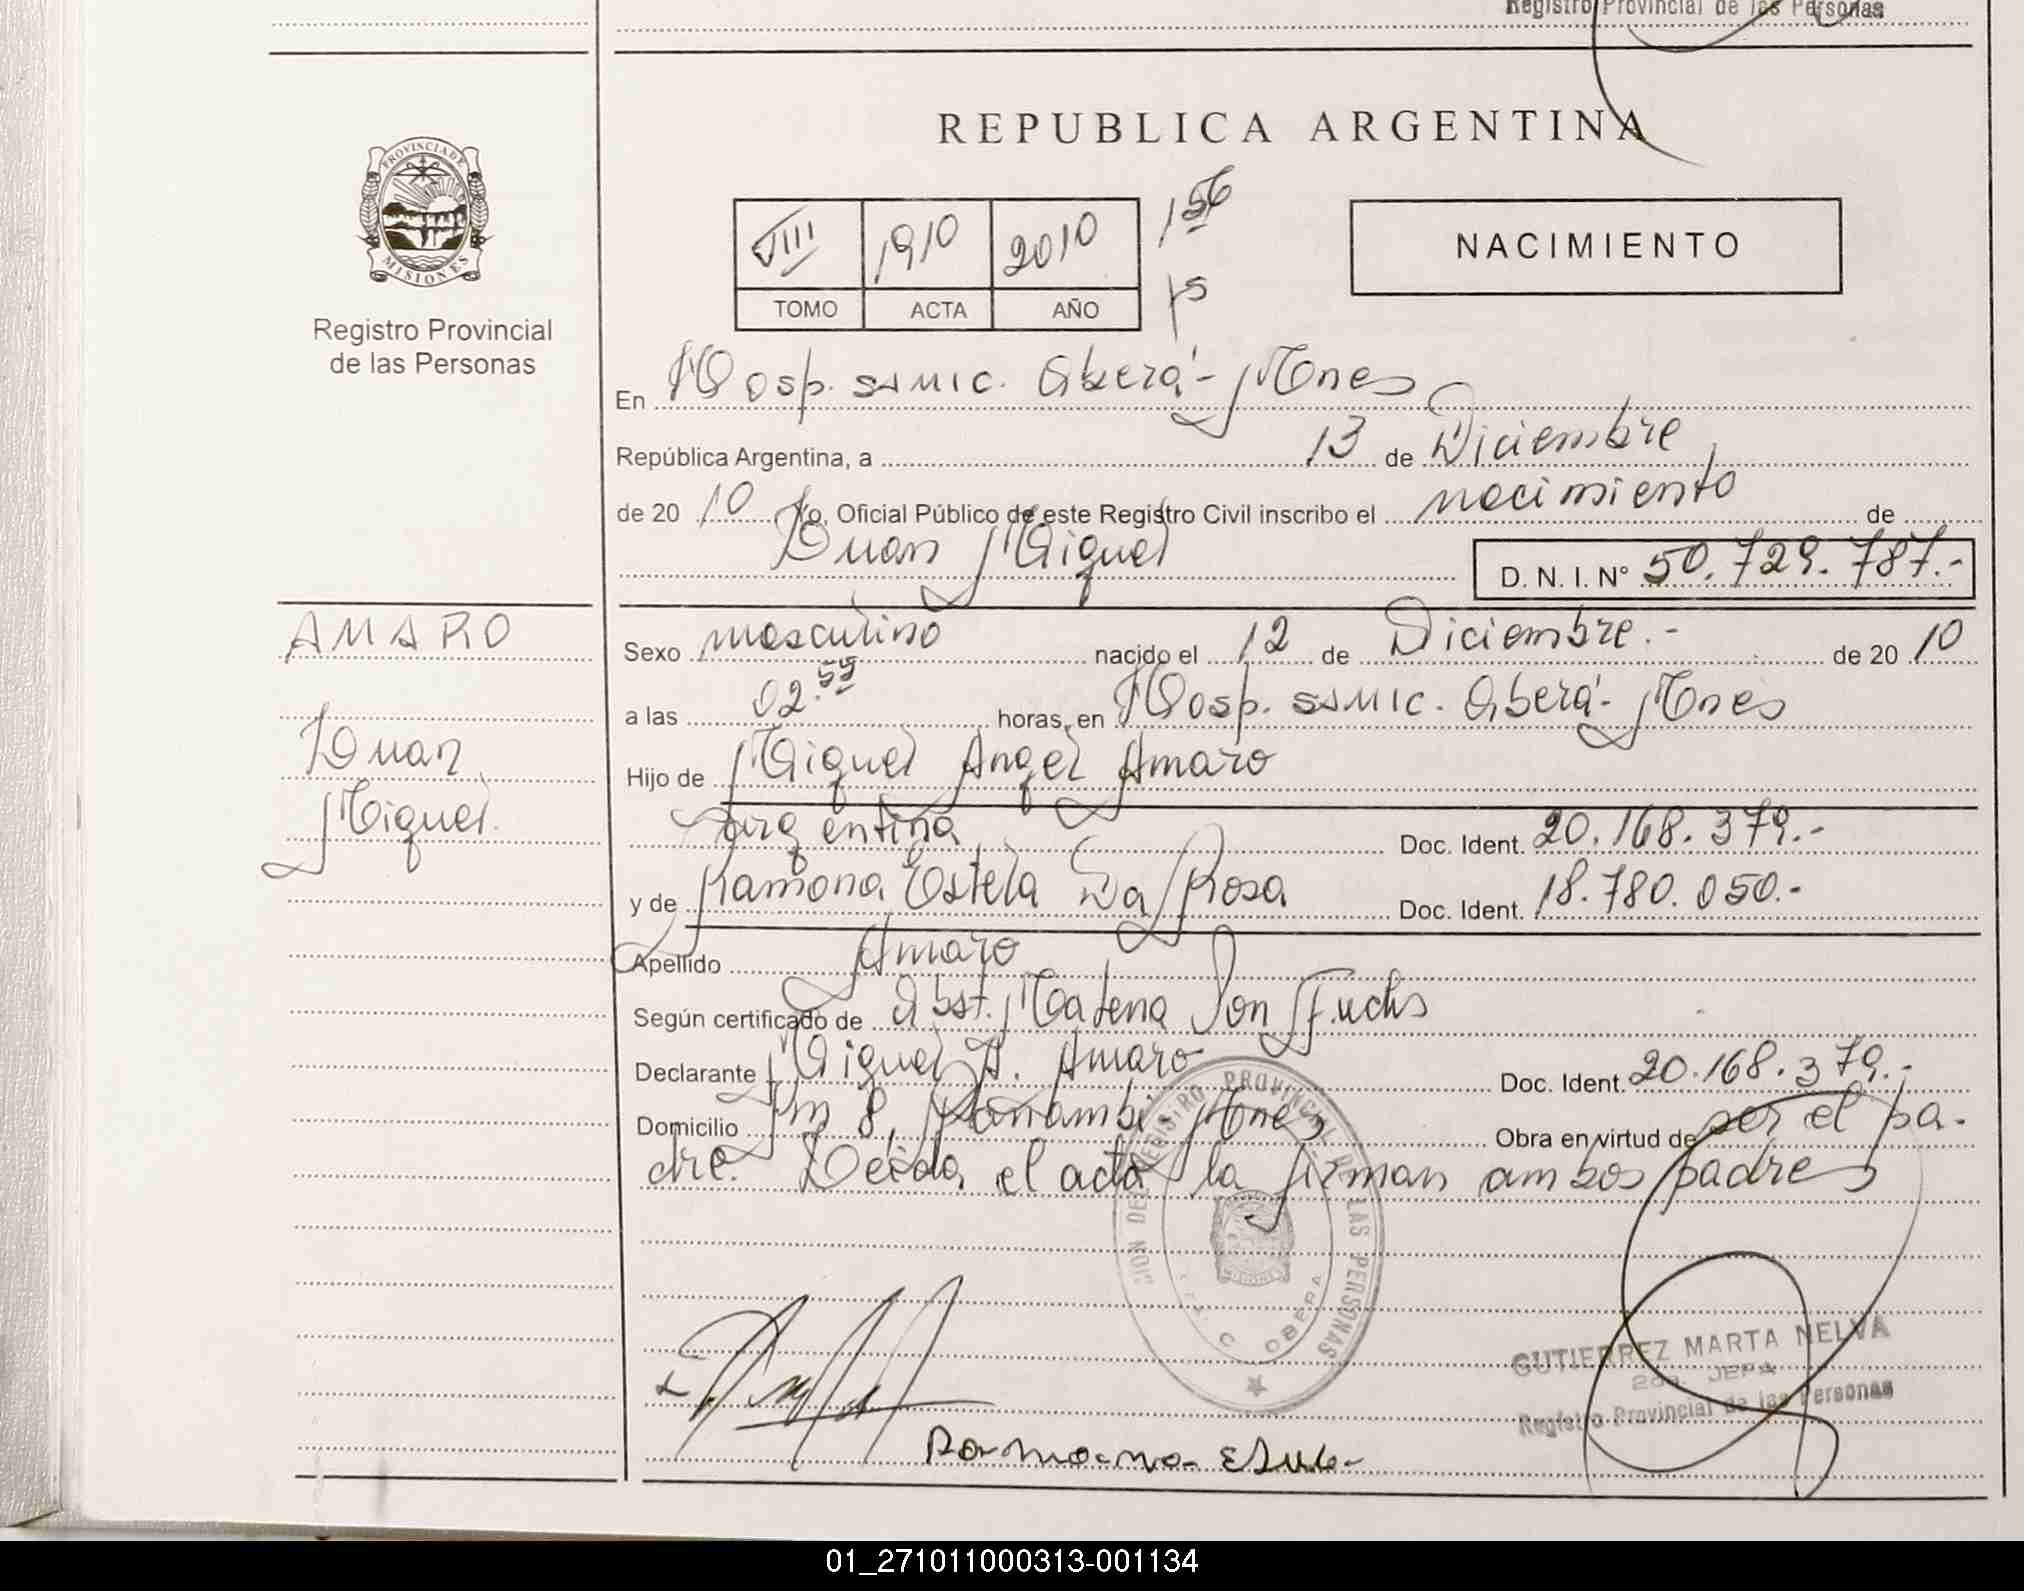 Registro Provincial de las Personas
REPUBLICA ARGENTINA
PROVINCIA DE
MISIONES
Registro Provincial
de las Personas
VIII 1910 2010
TOMO ACTA AÑO
156
NACIMIENTO
En Hosp. SAMIC. Oberá - Mnes
República Argentina, a 13 de Diciembre
de 2010 Yo, Oficial Público de este Registro Civil inscribo el nacimiento de
Juan Miguel
D. N. I. N° 50.729.787.-
AMARO
Juan
Miguel.
Sexo masculino nacido el 12 de Diciembre.- de 2010
a las 02.59 horas, en Hosp. SAMIC. Oberá- Mnes
Hijo de Miguel Angel Amaro
argentina Doc. Ident. 20.168.379.-
y de Ramona Estela Da Rosa Doc. Ident. 18.780.050.-
Apellido Amaro
Según certificado de Obst. Malena Von Fuchs
Declarante Miguel A. Amaro Doc. Ident. 20.168.379.-
Domicilio Km 8, Panambí Mnes Obra en virtud de ser el pa-
dre. Leída el acta la firman ambos padres
REGISTRO PROVINCIAL DE LAS PERSONAS
OBERA
GUTIERREZ MARTA NELVA
2da. JEFA
Registro Provincial de las Personas
01_271011000313-001134